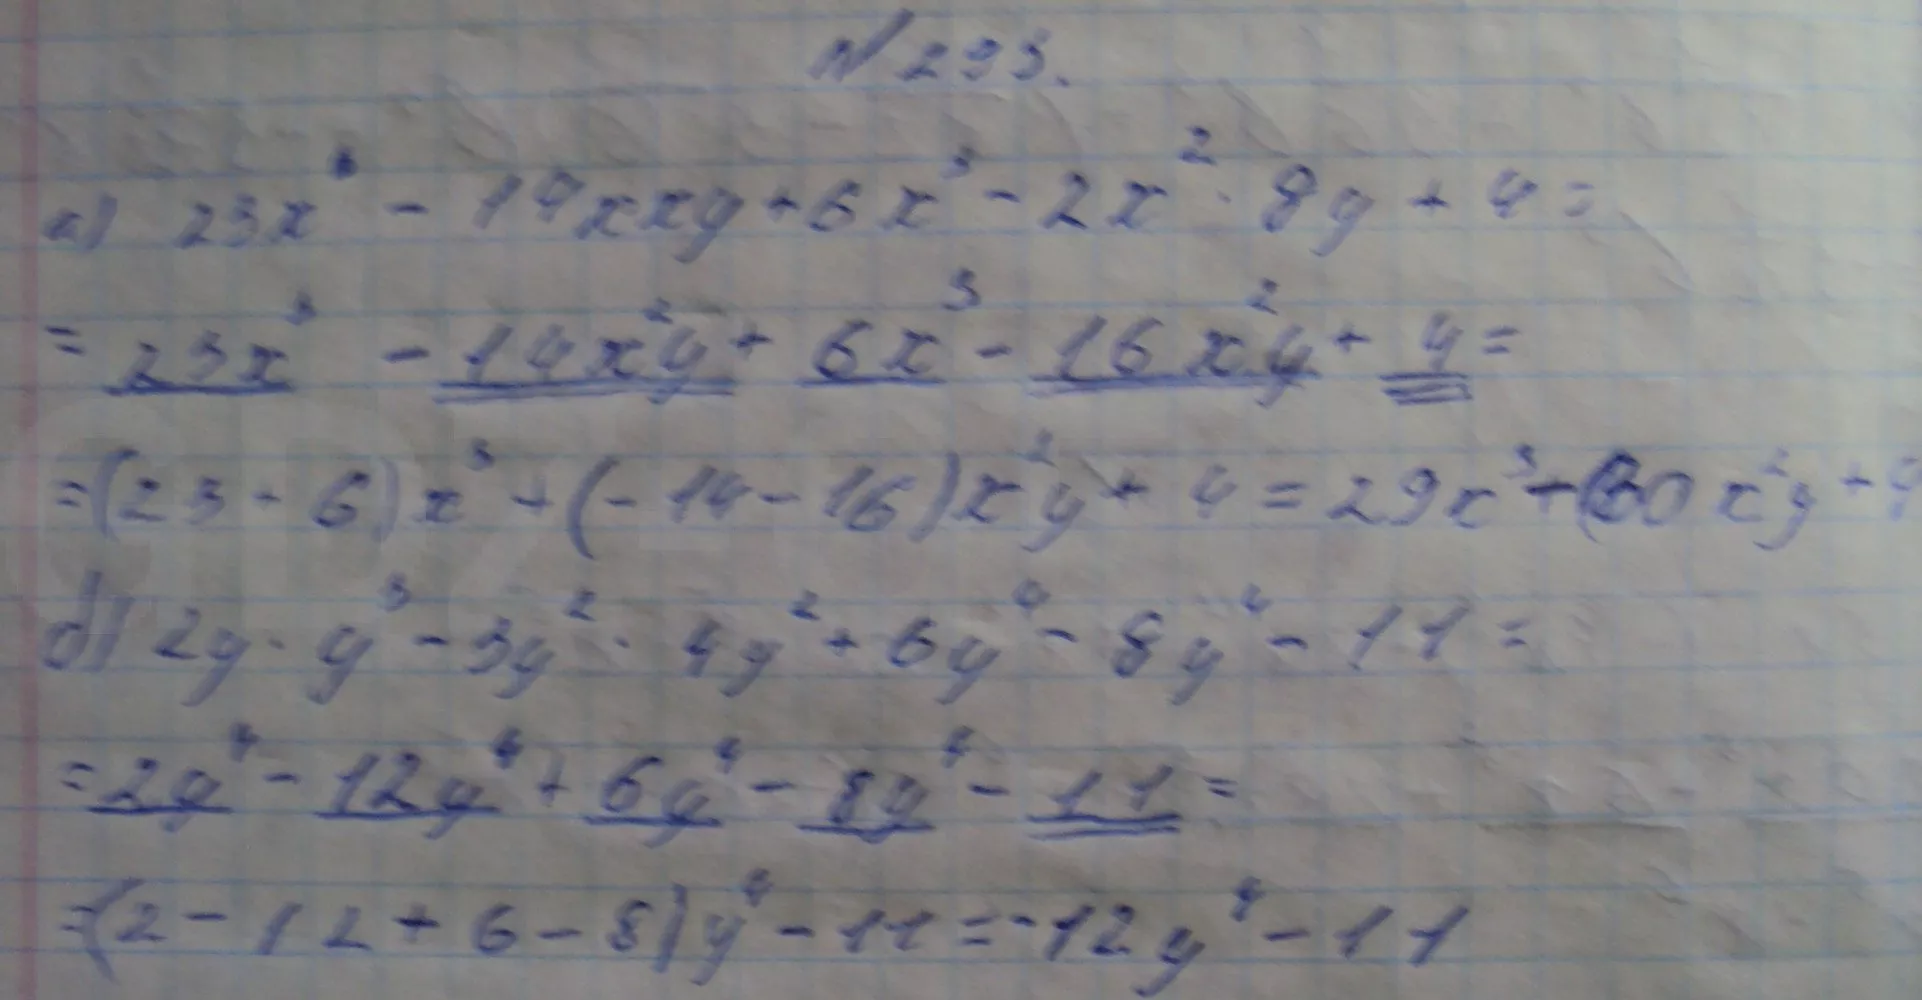 № 293.
а) 23x³ - 14xxy + 6x³ - 2x² · 8y + 4 =
= 23x³ - 14x²y + 6x³ - 16x²y + 4 =
= (23 - 6)x³ + (-14 - 16)x²y + 4 = 29x³ - 30x²y + 4
б) 2y · y³ - 3y² · 4y² + 6y⁴ - 8y⁴ - 11 =
= 2y⁴ - 12y⁴ + 6y⁴ - 8y⁴ - 11 =
= (2 - 12 + 6 - 8)y⁴ - 11 = -12y⁴ - 11